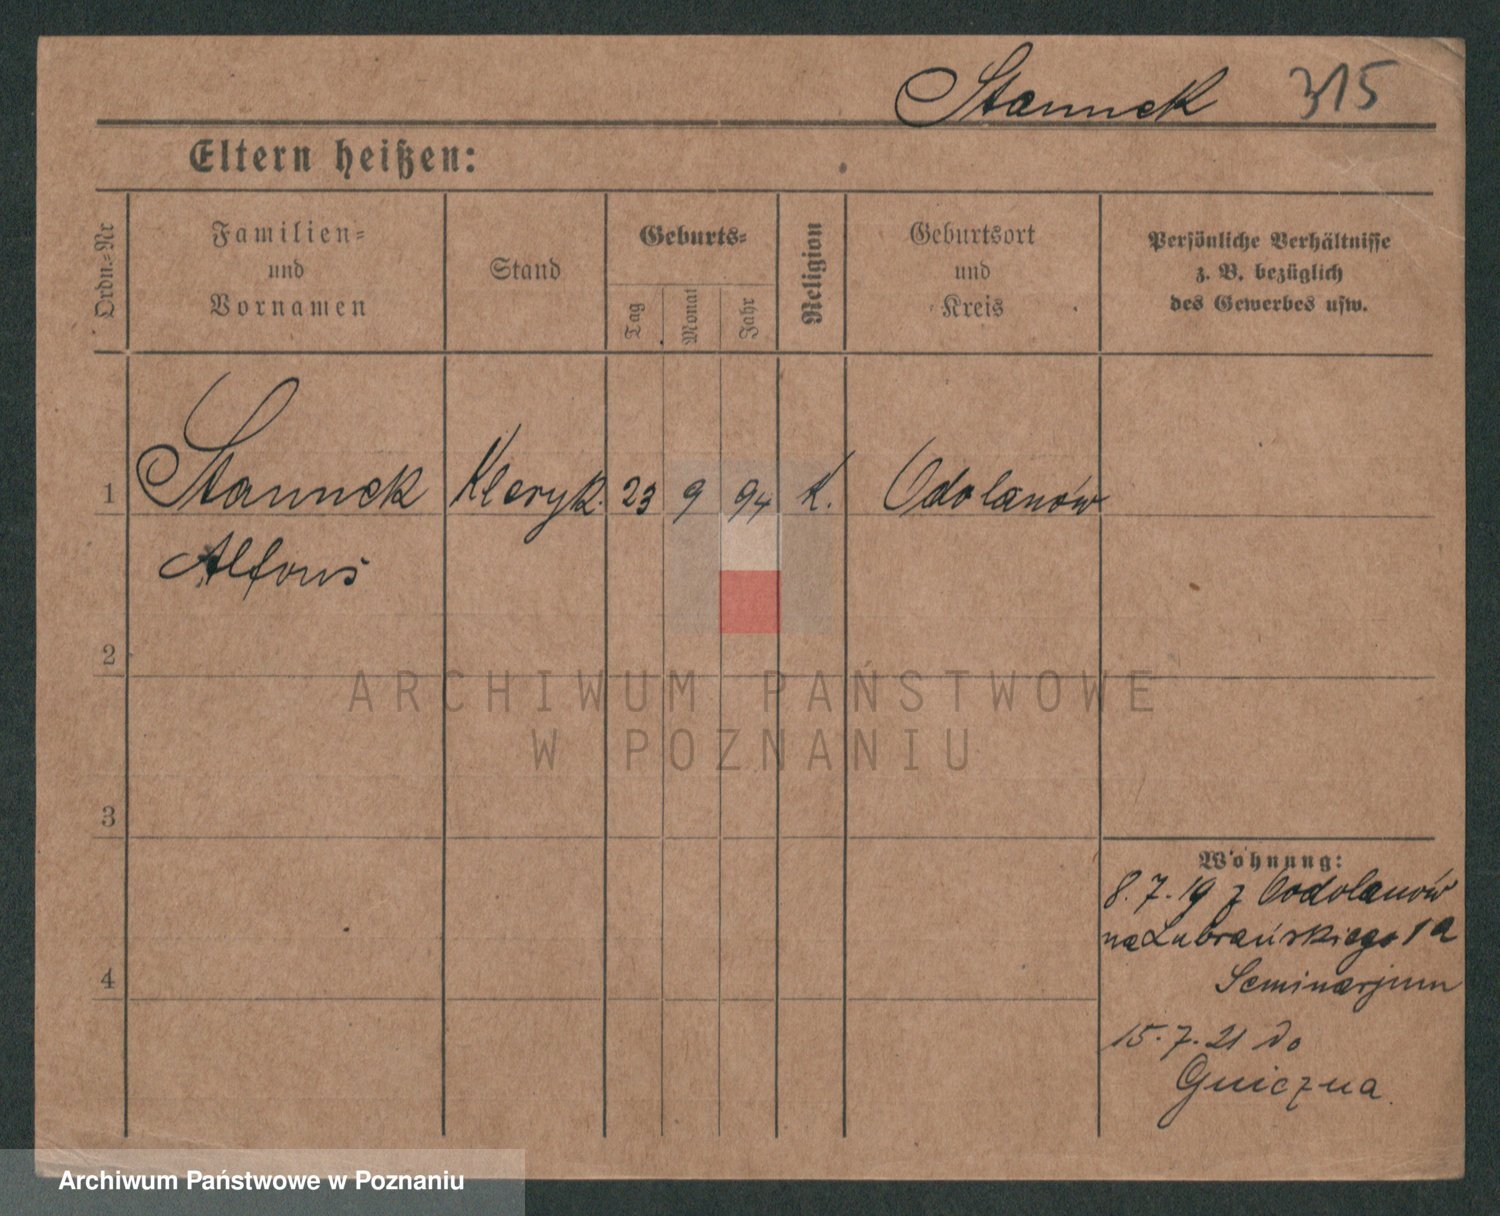 Stannek 315
Eltern heißen:
Ordn.-Nr
Familien-
und
Vornamen
Stand
Geburts-
Tag
Monat
Jahr
Religion
Geburtsort
und
Kreis
Persönliche Verhältnisse
z. B. bezüglich
des Gewerbes usw.
1 Stannek Kleryk. 23 9 94 k. Odolanów
Alfons
2
3
4
Wohnung:
8.7.19 z Odolanów
na Lubrańskiego 1a
Seminarjum
15.7.21 do
Gniezna.
ARCHIWUM PAŃSTWOWE
W POZNANIU
Archiwum Państwowe w Poznaniu